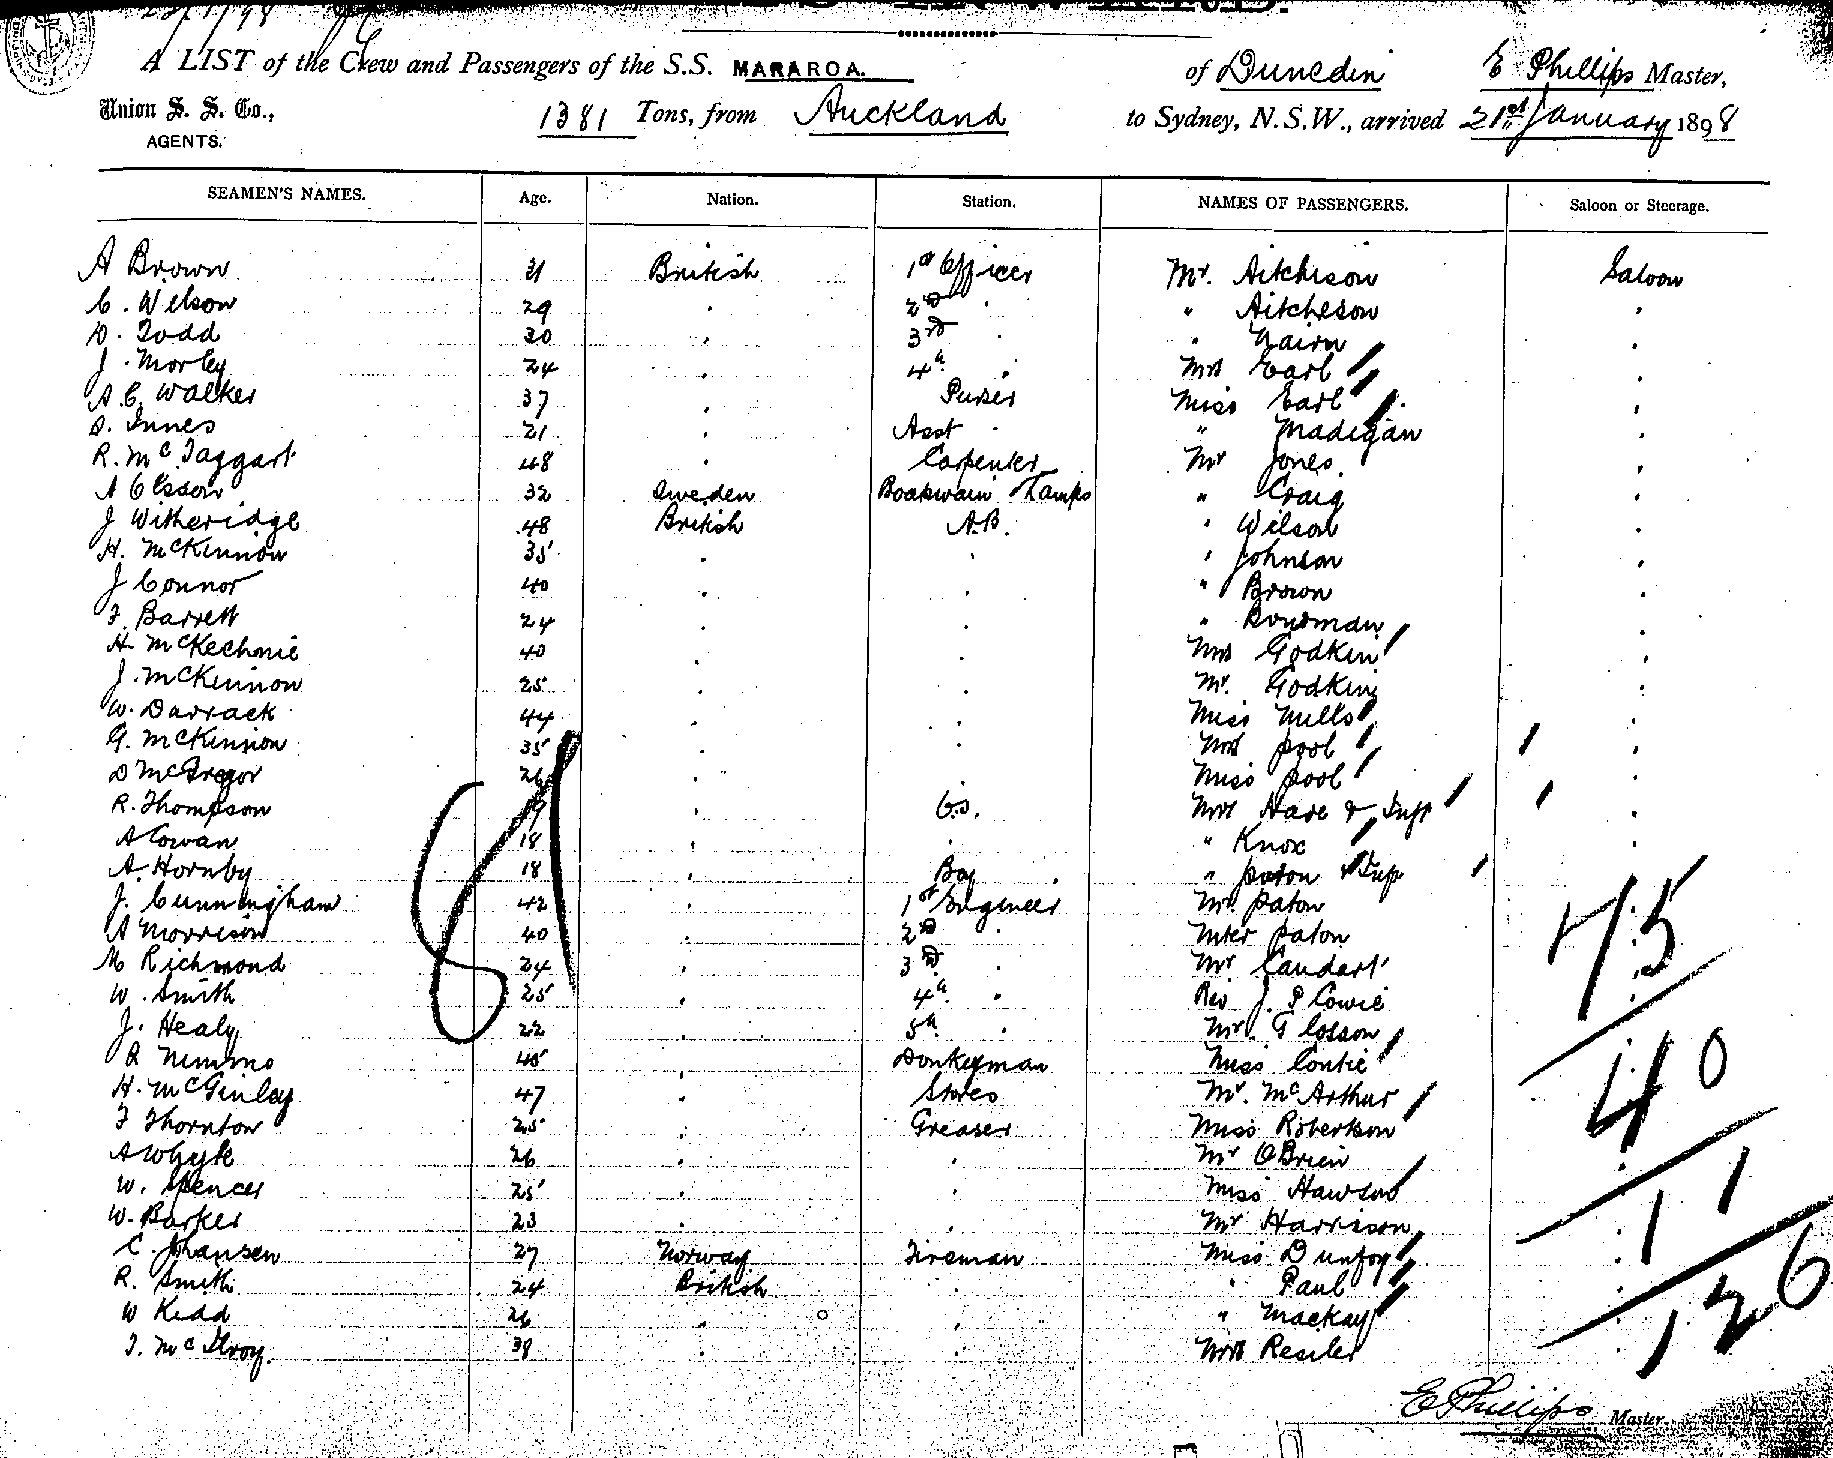 A LIST of the Crew and Passengers of the S.S. MARAROA. of Dunedin E Phillips Master,
Union S. S. Co., 1381 Tons, from Auckland to Sydney, N.S.W., arrived 21st January 1898
AGENTS.
SEAMEN'S NAMES. Age. Nation. Station. NAMES OF PASSENGERS. Saloon or Steerage.
A Brown 31 British 1st Officer Mr. Aitchison Saloon
C. Wilson 29 2nd " Aitcheson
D. Todd 30 3rd " Nairn
J. Morley 24 4th Mrs Earl
A. C. Walker 37 Purser Miss Earl
D. Innes 21 Asst " Madigan
R. McTaggart 48 Carpenter Mr Jones
A Olsson 32 Sweden Boatswain & Lamps " Craig
J Witheridge 48 British A.B. " Wilson
H. McKinnon 35 " Johnson
J Connor 40 " Brown
F. Barrett 24 " Bowman
H. McKechnie 40 Mrs Godkin
J. McKinnon 25 Mr. Godkin
W. Darrack 44 Miss Mills
G. McKinnon 35 Mrs Pool
D McGregor 26 Miss Pool
R. Thompson 19 O.S. Mrs Hare & Inft
A Cowan 18 " Knox
A. Hornby 18 Boy " Paton & Inft
J. Cunningham 42 1st Engineer Mr. Paton
A Morrison 40 2nd Mster Paton
M Richmond 24 3rd Mr Caudart
W. Smith 25 4th Rev J. P Cowie
J. Healy 22 5th Mr. G Closson
R Nimmo 45 Donkeyman Miss Contie
H. McGinley 47 Stores Mr. McArthur
F Thornton 25 Greaser Miss Robertson
A Whyte 26 Mr O'Brien
W. Spencer 25 Miss Hawson
W. Barker 23 Mr Harrison
C. Johansen 27 Norway Fireman Miss Dunfoy
R. Smith 24 British " Paul
W Kidd 26 " Mackay
T. McIlroy 38 Mrs Resiler
81
75
40
11
126
E Phillips Master